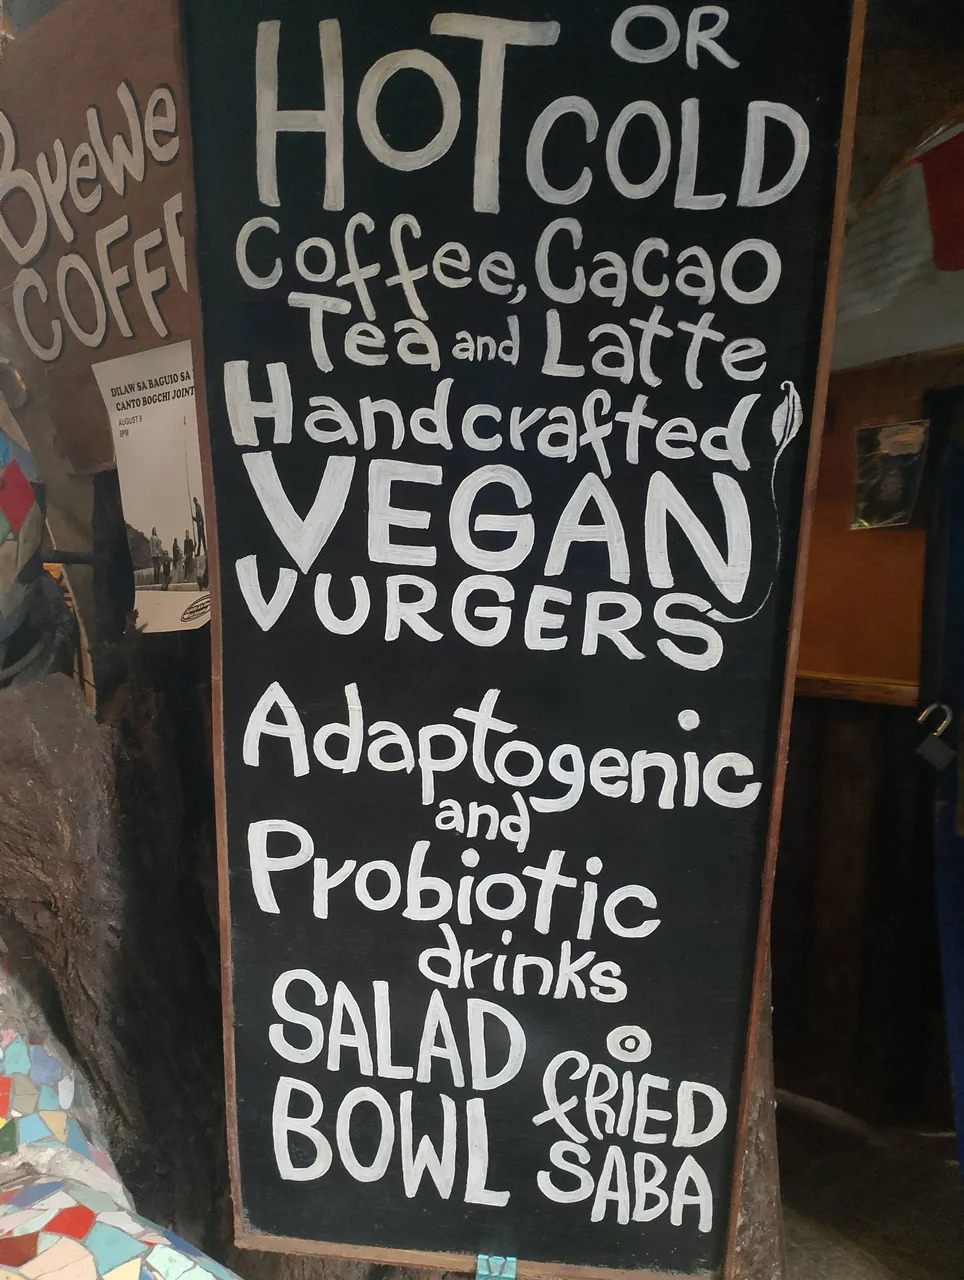 HOT OR
COLD
Coffee, Cacao
Tea and Latte
Handcrafted
VEGAN
VURGERS
Adaptogenic
and
Probiotic
drinks
SALAD
BOWL
FRIED
SABA
COFF
DILAW SA BAGUIO SA
CANTO BOGCHI JOINT
AUGUST 9
8PM